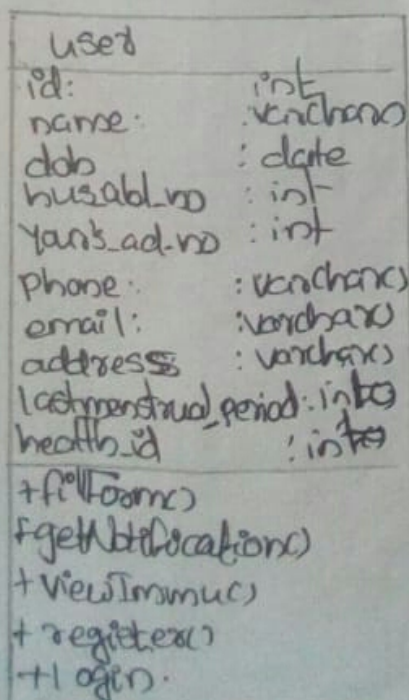 user
id: int
name: varchar()
dob : date
husabd_no : int
Yan's_ad-no : int
phone: : varchar()
email: :varchar()
address : varchar()
lastmenstrual_period: int()
health_id : int
+fillForm()
+getNotification()
+viewImmu()
+ register()
+login.